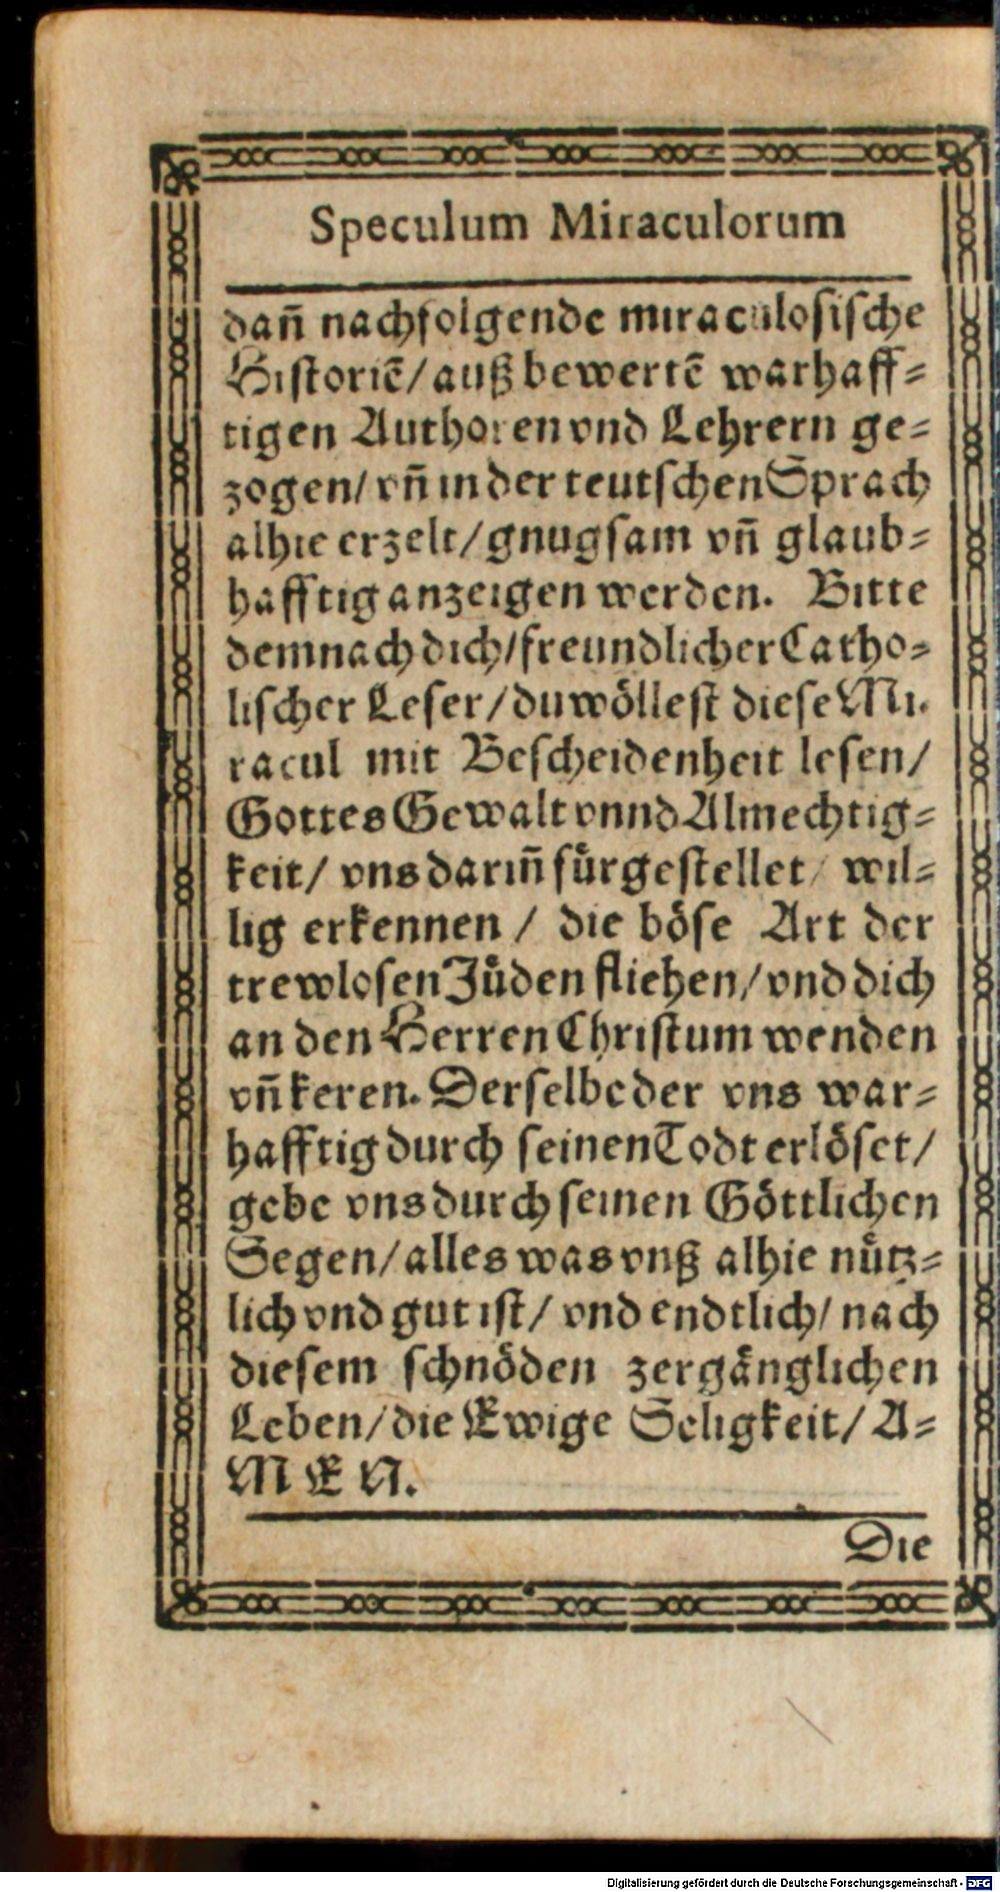 Speculum Miraculorum
dañ nachfolgende miraculosische
Historiẽ/ auß bewertẽ warhaff-
tigen Authoren vnd Lehrern ge-
zogen/ vñ in der teutschen Sprach
alhie erzelt/ gnugsam vñ glaub-
hafftig anzeigen werden. Bitte
demnach dich/ freundlicher Catho-
lischer Leser/ du wöllest diese Mi-
racul mit Bescheidenheit lesen/
Gottes Gewalt vnnd Almechtig-
keit/ vns dariñ fürgestellet/ wil-
lig erkennen/ die böse Art der
trewlosen Jüden fliehen/ vnd dich
an den Herren Christum wenden
vñ keren. Derselbe der vns war-
hafftig durch seinen Todt erlöset/
gebe vns durch seinen Göttlichen
Segen/ alles was vnß alhie nütz-
lich vnd gut ist/ vnd endtlich/ nach
diesem schnöden zergänglichen
Leben/ die Ewige Seligkeit/ A-
MEN.
Die
Digitalisierung gefördert durch die Deutsche Forschungsgemeinschaft - DFG